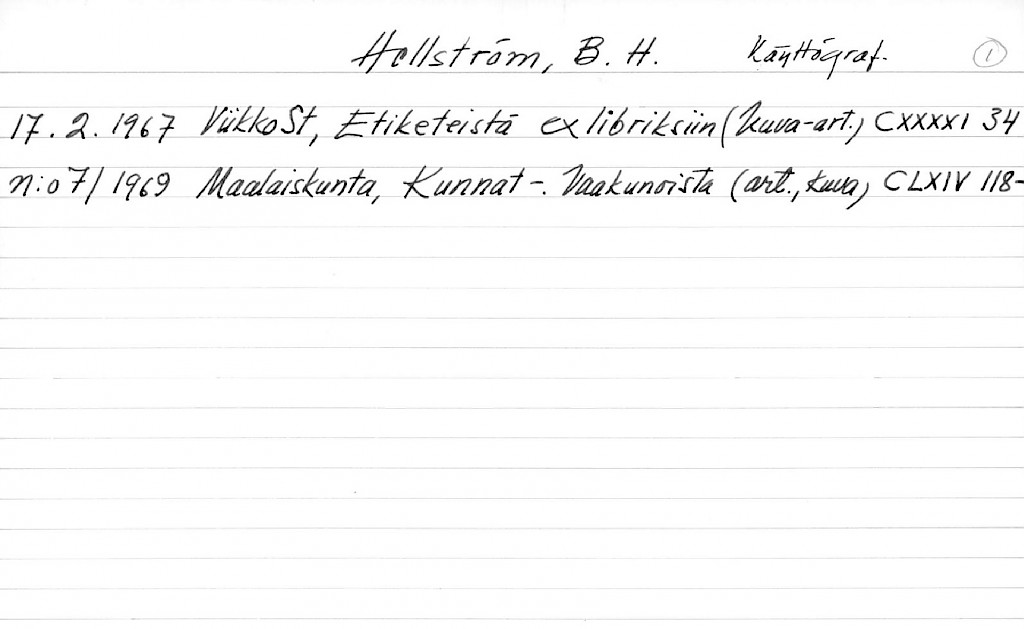 Hellström, B. H. Käyttögraf. 1
17. 2. 1967 ViikkoSt, Etiketeistä ex libriksiin (kuva-art.) CXXXXI 34
N:o 7/1969 Maalaiskunta, Kunnat -. Vaakunoista (art., kuva) CLXIV 118-